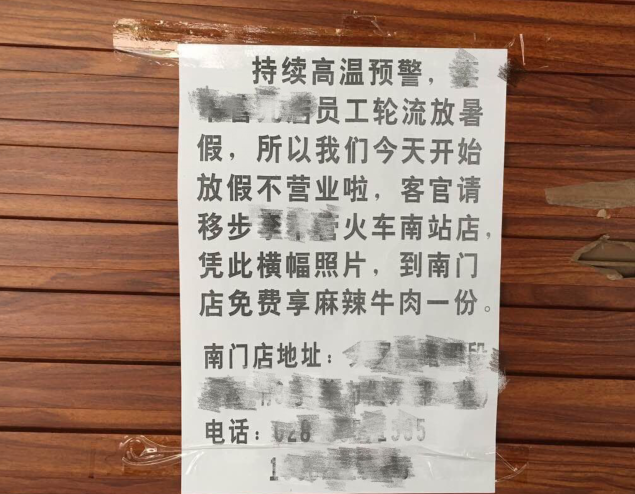 持续高温预警，
店员工轮流放暑
假，所以我们今天开始
放假不营业啦，客官请
移步火车南站店，
凭此横幅照片，到南门
店免费享麻辣牛肉一份。
南门店地址：段
电话：028
1